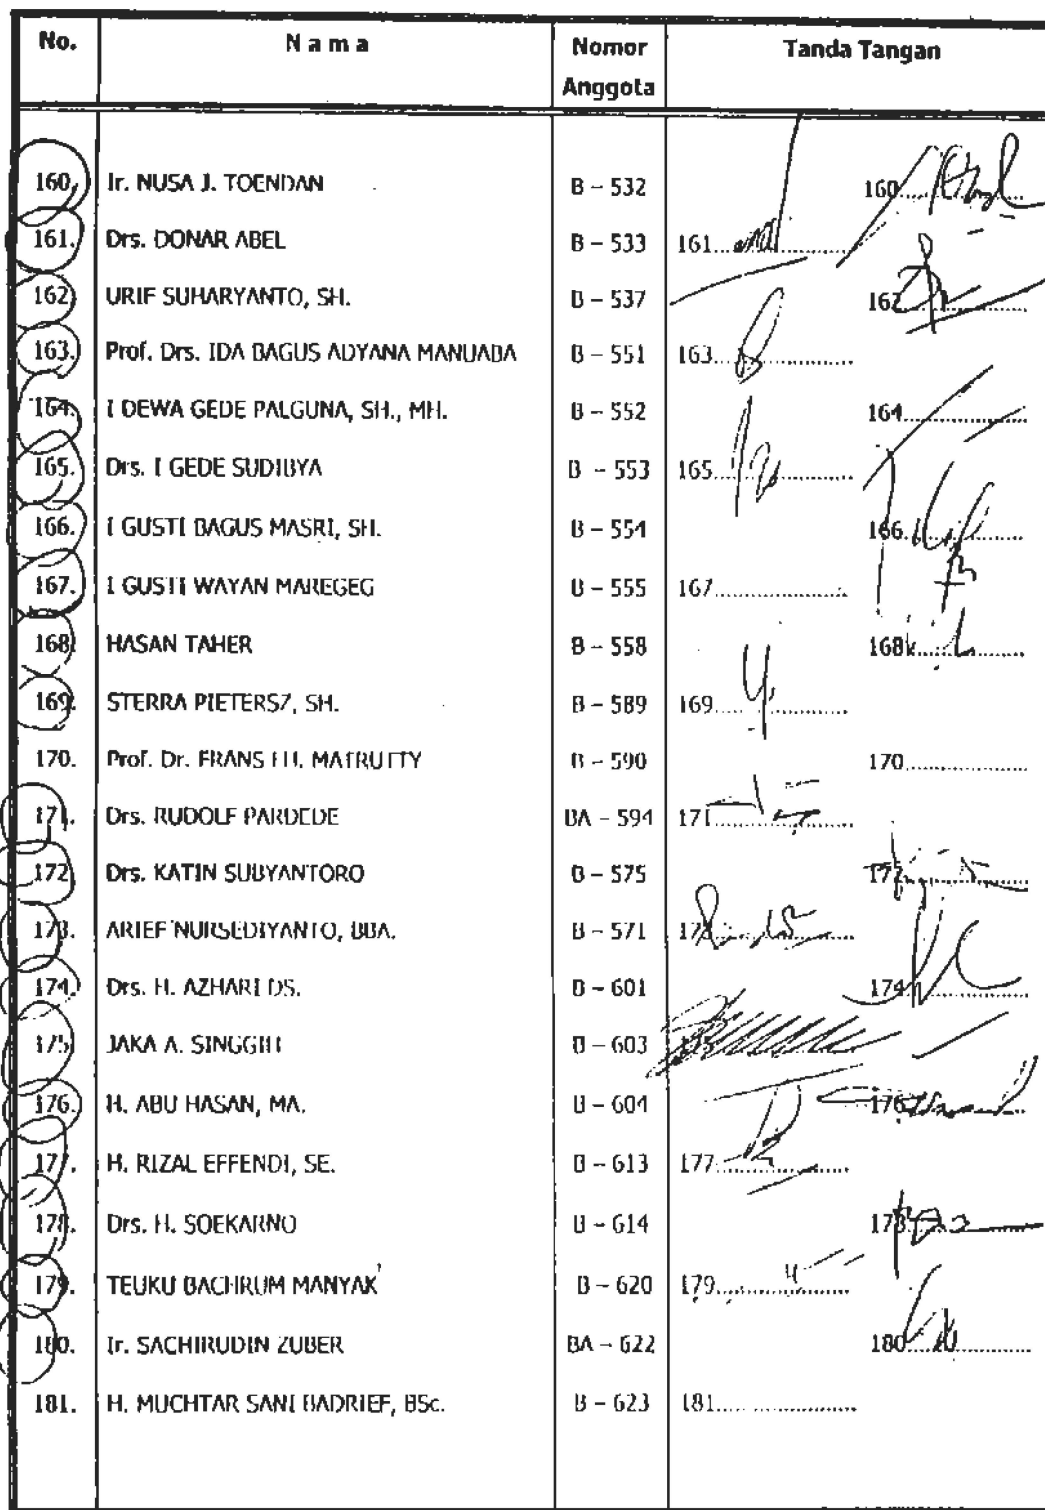 No. Nama Nomor Anggota Tanda Tangan
160. Ir. NUSA J. TOENDAN B – 532 160
161. Drs. DONAR ABEL B – 533 161
162. URIF SUHARYANTO, SH. B – 537 162
163. Prof. Drs. IDA BAGUS ADYANA MANUABA B – 551 163
164. I DEWA GEDE PALGUNA, SH., MH. B – 552 164
165. Drs. I GEDE SUDIBYA B – 553 165
166. I GUSTI BAGUS MASRI, SH. B – 554 166
167. I GUSTI WAYAN MAREGEG B – 555 167
168. HASAN TAHER B – 558 168
169. STERRA PIETERSZ, SH. B – 589 169
170. Prof. Dr. FRANS MATRUTTY B – 590 170
171. Drs. RUDOLF PARDEDE BA – 594 171
172. Drs. KATIN SUBYANTORO B – 575 172
173. ARIEF NURSEDIYANTO, BBA. B – 571 173
174. Drs. H. AZHARI DS. B – 601 174
175. JAKA A. SINGGIH B – 603 175
176. H. ABU HASAN, MA. B – 604 176
177. H. RIZAL EFFENDI, SE. B – 613 177
178. Drs. H. SOEKARNO B – 614 178
179. TEUKU BACHRUM MANYAK B – 620 179
180. Ir. SACHIRUDIN ZUBER BA – 622 180
181. H. MUCHTAR SANI BADRIEF, BSc. B – 623 181